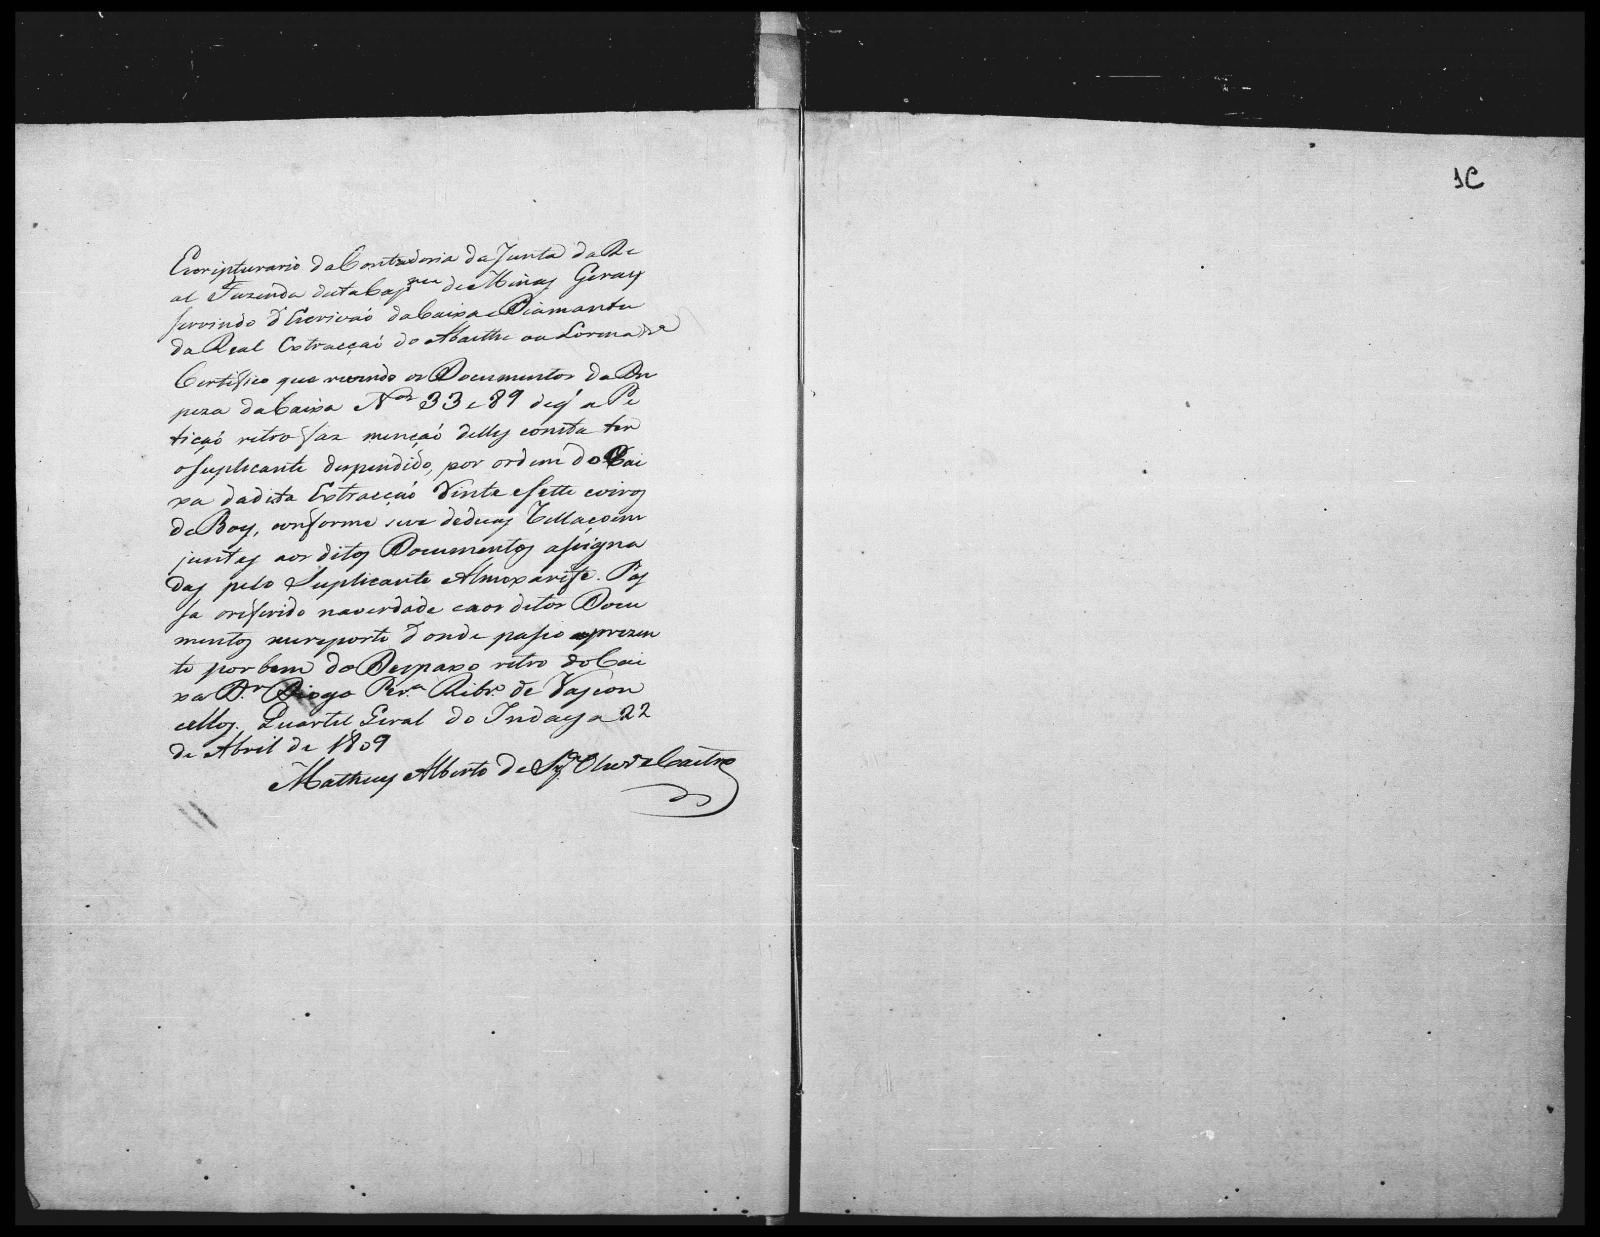 Escripturario da Contadoria da Junta da Re
al Fazenda desta Capnia de Minas Geraes
servindo d'Escrivaõ da Caixa e Diamantes
da Real Extracçaõ do Abaethe ou Lorena &a
Certifico que revendo os Documentos da Des
peza da Caixa Nos 33 e 89 de q' a Pe
tiçaõ retro faz mençaõ delles consta ter
o Suplicante despendido, por ordem do Cai
xa da dita Extracçaõ Vinte e sette coiros
de Boy, conforme
juntas aos ditos Documentos assigna
das pelo Suplicante Almoxarife. Pas
sa o referido na verdade e aos ditos Docu
mentos me reporto d'onde passo a prezen
te por bem do Despaxo retro do Cai
xa Dr. Diogo Pera. Ribro. de Vascon
cellos. Quartel Geral do Indaya 22
de Abril de 1809
Matheus Alberto de Castro
1C